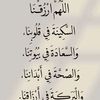 اللَّهُمَّ ارْزُقْنَا
السَّكِينَةَ فِي قُلُوبِنَا،
وَالسَّعَادَةَ فِي بُيُوتِنَا،
وَالصِّحَّةَ فِي أَبْدَانِنَا،
وَالْبَرَكَةَ فِي أَرْزَاقِنَا